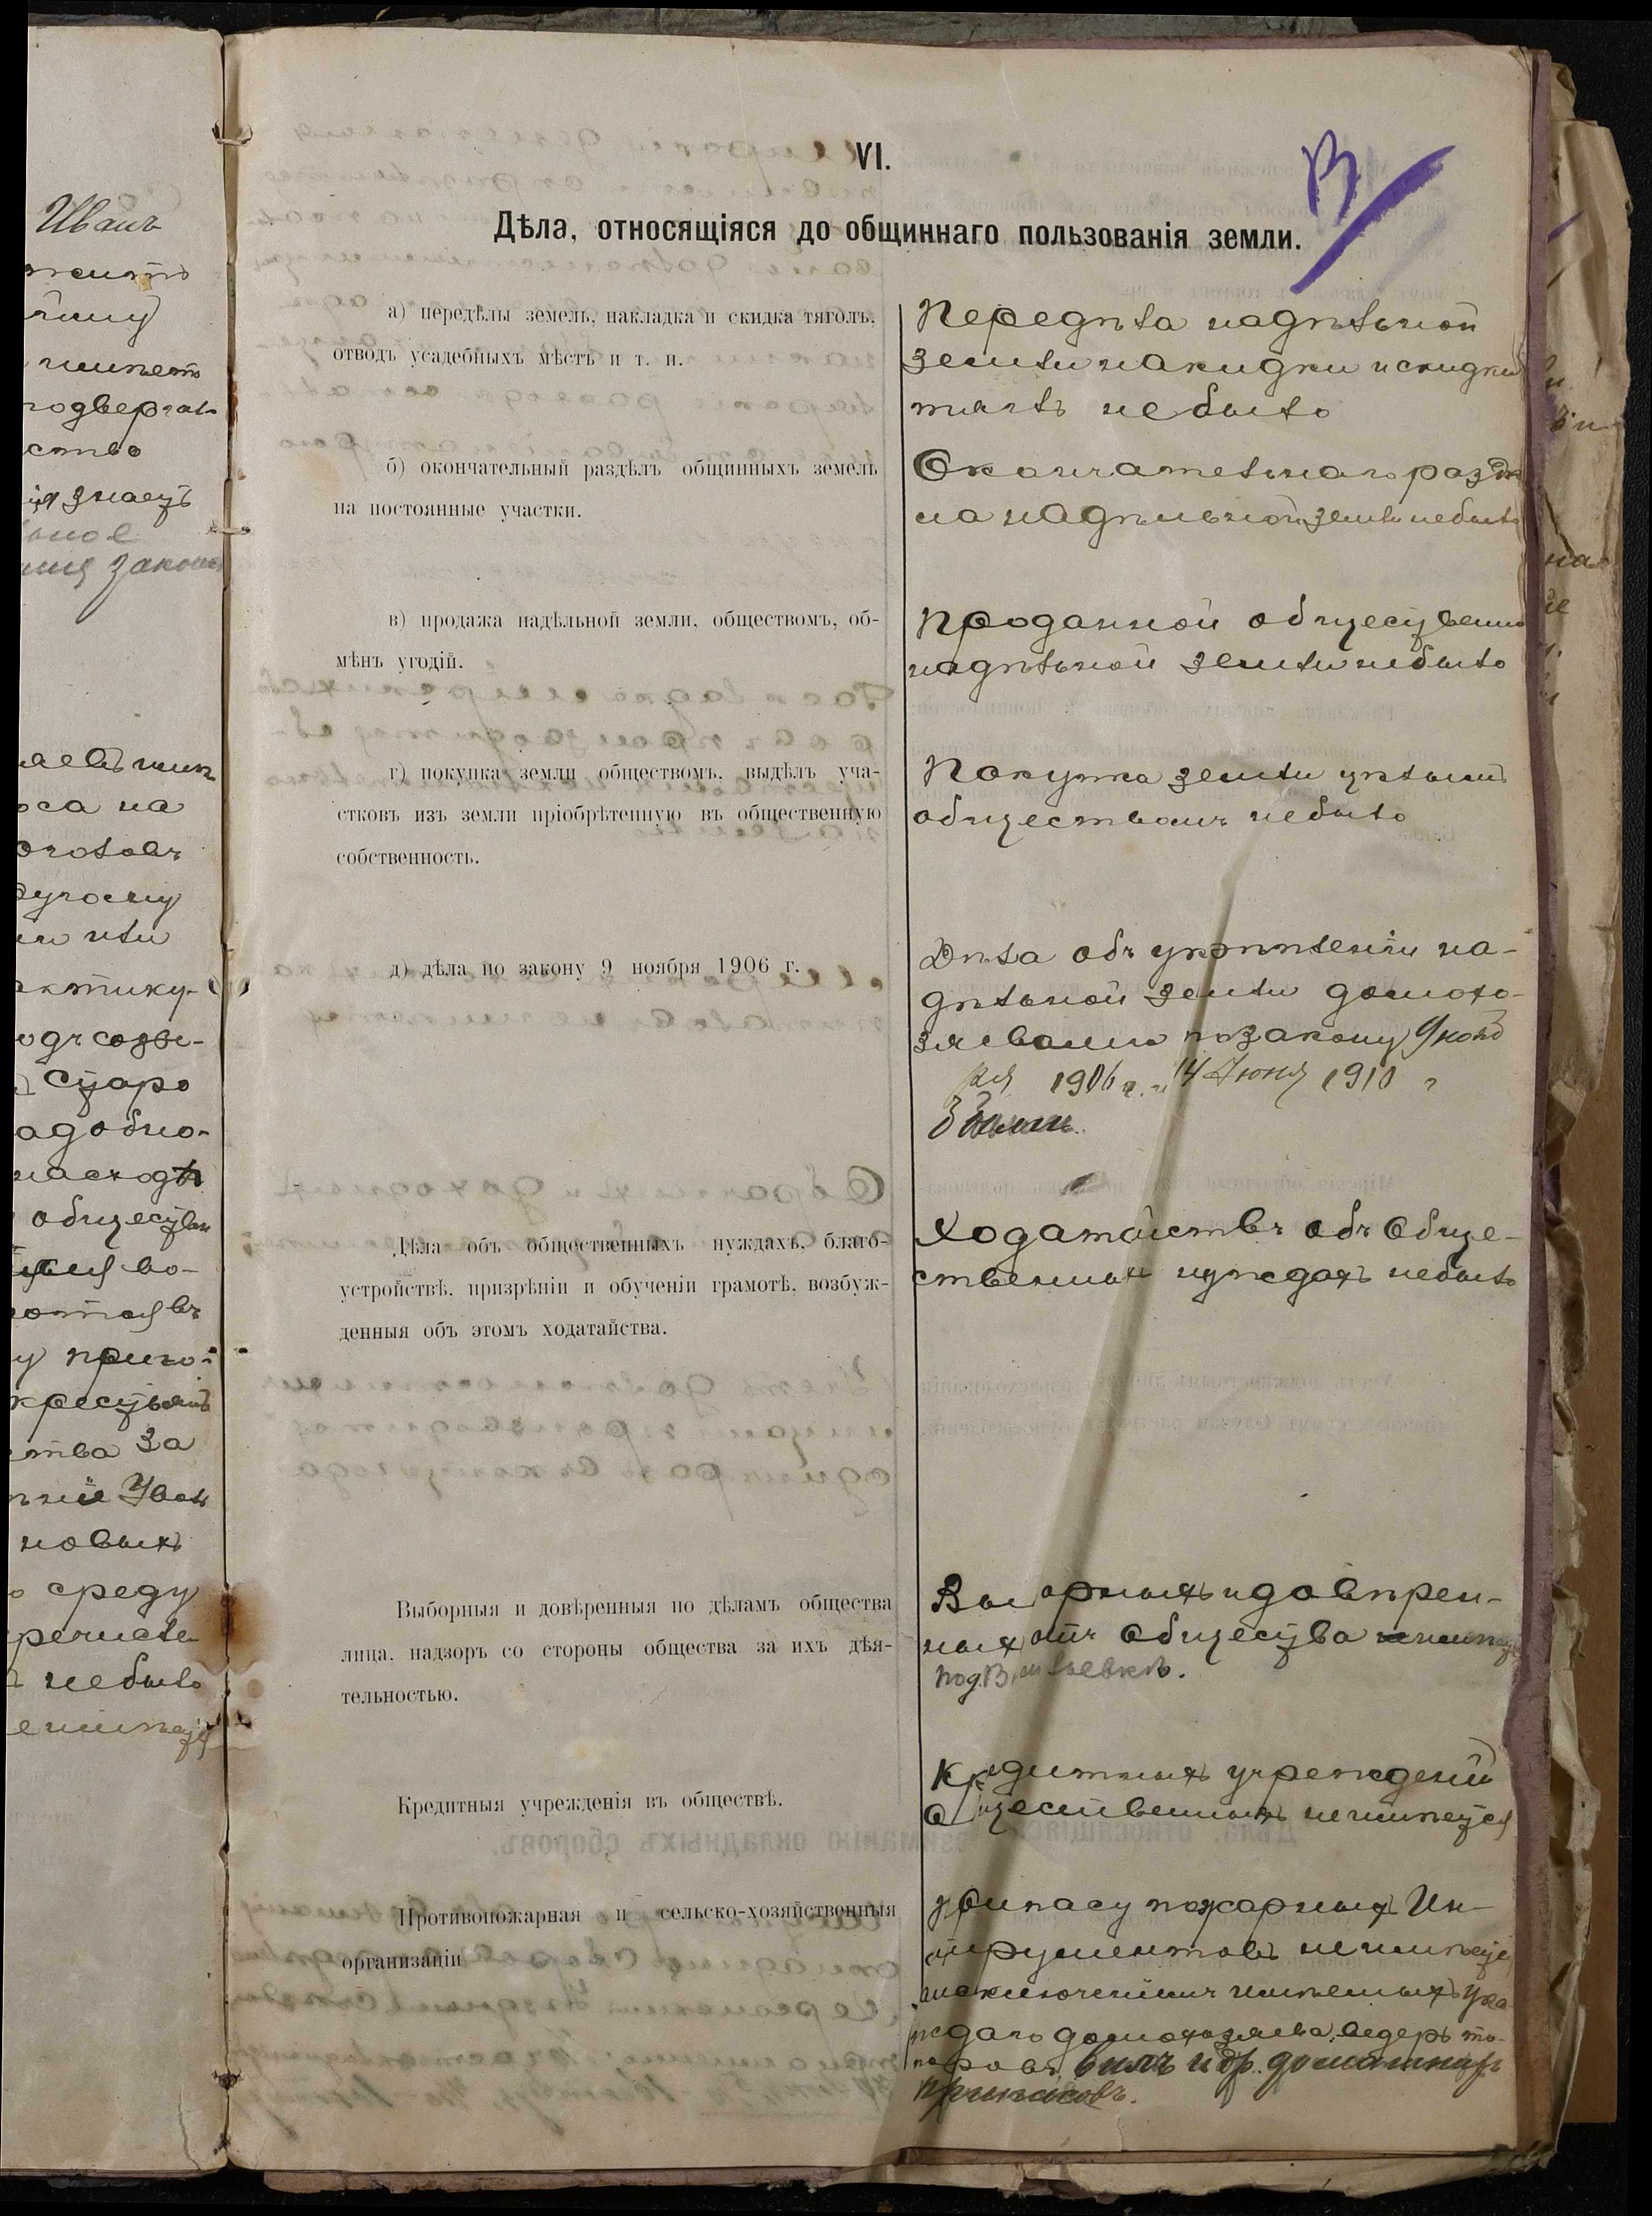 Иванъ
подвергат-
ство
знаетъ
законъ
оса на
другому
одъ созве-
старо
адобно-
на сходѣ
обществен
кресть
ства за
новыхъ
среду
небыло
VI.
В
Дѣла, относящіяся до общиннаго пользованія земли.
а) передѣлы земель, накладка и скидка тяголъ,
отводъ усадебныхъ мѣстъ и т. п.
Передѣла надѣльной
земли накидки и скидки
тяглъ небыло
б) окончательный раздѣлъ общинныхъ земель
на постоянные участки.
Окончательнаго раздѣ
ла надѣльной земли небыло
в) продажа надѣльной земли, обществомъ, об-
мѣнъ угодій.
Проданной обществомъ
надѣльной земли небыло
г) покупка земли обществомъ, выдѣлъ уча-
стковъ изъ земли пріобрѣтенную въ общественную
собственность.
Покупка земли цѣлымъ
обществомъ небыло
д) дѣла по закону 9 ноября 1906 г.
Дѣла объ укрѣпленіи на-
дѣльной земли домохо-
зяевами по закону 9 нояб
ря 1906 г. и 14 Июня 1910 г
Дѣла объ общественныхъ нуждахъ, благо-
устройствѣ, призрѣніи и обученіи грамотѣ, возбуж-
денныя объ этомъ ходатайства.
Ходатайствъ объ Обще-
ственныхъ нуждахъ небыло
Выборныя и довѣренныя по дѣламъ общества
лица, надзоръ со стороны общества за ихъ дѣя-
тельностью.
Выборныхъ и довѣрен-
ныхъ отъ Общества
Кредитныя учрежденія въ обществѣ.
Кредитныхъ учрежденій
Общественныхъ неимѣется
Противопожарная и сельско-хозяйственныя
организаціи
припасу пожарныхъ Ин-
струментовъ неимѣется
исключеніемъ имѣемыхъ у ка
ждаго домохозяева ведеръ то-
поровъ, вилъ и др. домашнихъ
припасовъ.